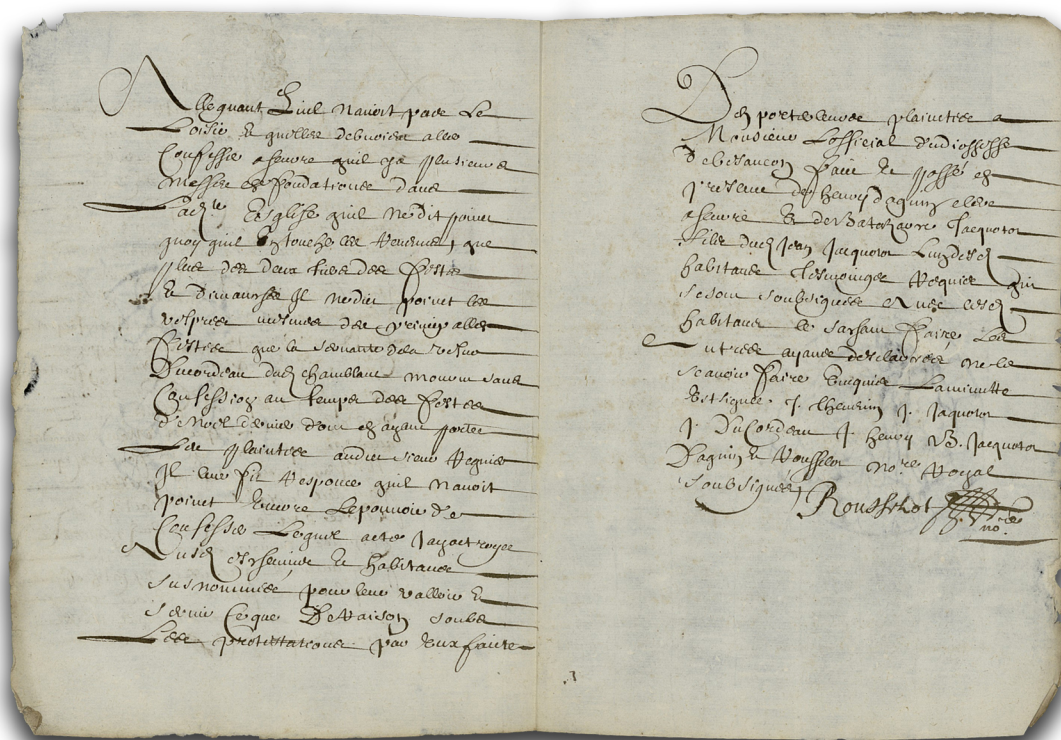 Alleguant quil navoit pade le
Loisir et quilles debvoien aller
Confesser asseurre quil ya plusieurs
Messes et fondationes dans
Lade Esglise quil ne dit point
quoy quil En touche les Revenues, que
plus des deux tiers des festes
et dimanches Il ne dit point les
vespres mesmes des principalles
festes que la servante de la vefve
Ducordeau dud chamblanc mourut sans
Confession au temps des festes
de Noel dernier dont en ayant porter
Les plaintes audit sieur Requis
Il leur fit Response quil navoit
point Encore Le pouvoir de
Confesser Lequel acte Jay octroyer
Ausd eschevins et habitans
susnommés pour leur valloir et
servir Ce que De Raison soubs
Les protestations par Eux faites
Den porter leurs plaintes a
Monsieur Lofficial du diossesse
De besancon faict et passé en
presence de henry daguin clerc
asseurre et de Jacquotor
fils dud Jean Jacquotor
habitans tesmoings Requis qui
se sont soubsignés avec lesd
habitans le sachant faire Les
Autres ayans desclairés ne le
scavoir faire Enquis La minutte
Est signée J. thevenin J. Jaquotor
J. Du Cordeau J. henry B. Jacquotor
Daguin et Rousselot nore Royal
soubsigné,
Rousselot
nore